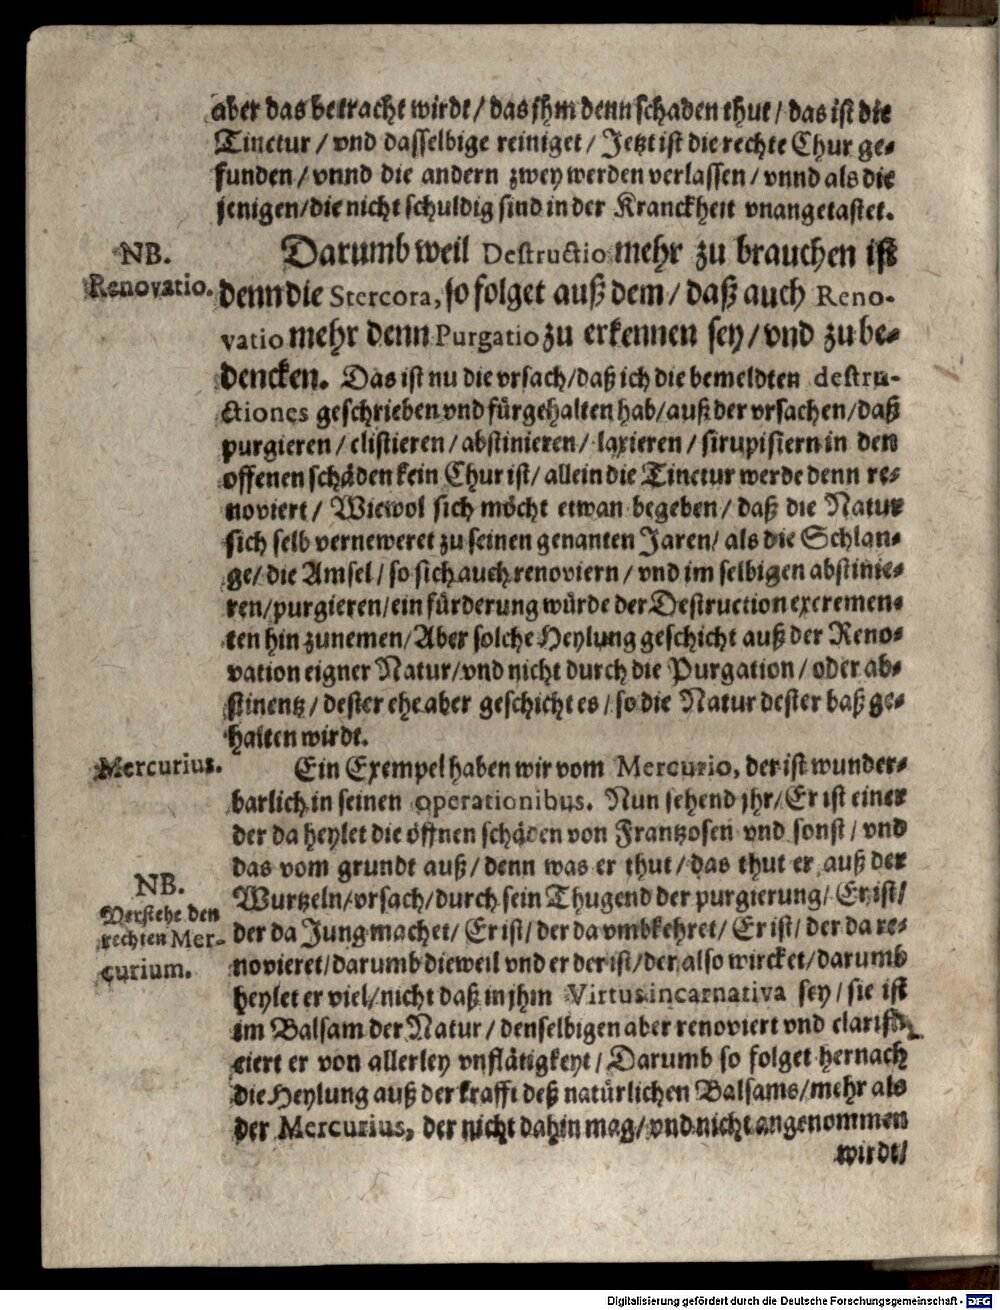 aber das betracht wirdt/ das jhm denn schaden thut/ das ist die
Tinctur/ vnd dasselbige reiniget/ Jetzt ist die rechte Chur ge-
funden/ vnnd die andern zwey werden verlassen/ vnnd als die
jenigen/ die nicht schuldig sind in der Kranckheit vnangetastet.
NB.
Renovatio.
Darumb weil Destructio mehr zu brauchen ist
denn die Stercora, so folget auß dem/ daß auch Reno-
vatio mehr denn Purgatio zu erkennen sey/ vnd zu be-
dencken. Das ist nu die vrsach/ daß ich die bemeldten destru-
ctiones geschrieben vnd fürgehalten hab/ auß der vrsachen/ daß
purgieren/ clistieren/ abstinieren/ laxieren/ sirupisiern in den
offenen schäden kein Chur ist/ allein die Tinctur werde denn re-
noviert/ Wiewol sich möcht etwan begeben/ daß die Natur
sich selb verneweret zu seinen genanten Jaren/ als die Schlan-
ge/ die Amsel/ so sich auch renoviern/ vnd im selbigen abstinie-
ren/ purgieren/ ein fürderung würde der Destruction excremen-
ten hin zunemen/ Aber solche Heylung geschicht auß der Reno-
vation eigner Natur/ vnd nicht durch die Purgation/ oder ab-
stinentz/ dester ehe aber geschicht es/ so die Natur dester baß ge-
halten wirdt.
Mercurius.
Ein Exempel haben wir vom Mercurio, der ist wunder-
barlich in seinen operationibus. Nun sehend jhr/ Er ist einer
der da heylet die öffnen schäden von Frantzosen vnd sonst/ vnd
das vom grundt auß/ denn was er thut/ das thut er auß der
NB.
Verstehe den
rechten Mer-
curium.
Wurtzeln/ vrsach/ durch sein Thugend der purgierung/ Er ist/
der da Jung machet/ Er ist/ der da vmbkehret/ Er ist/ der da re-
novieret/ darumb dieweil vnd er der ist/ der also wircket/ darumb
heylet er viel/ nicht daß in jhm Virtus incarnativa sey/ sie ist
im Balsam der Natur/ denselbigen aber renoviert vnd clarifi-
ciert er von allerley vnflätigkeyt/ Darumb so folget hernach
die Heylung auß der krafft deß natürlichen Balsams/ mehr als
der Mercurius, der nicht dahin mag/ vnd nicht angenommen
wirdt/
Digitalisierung gefördert durch die Deutsche Forschungsgemeinschaft - DFG